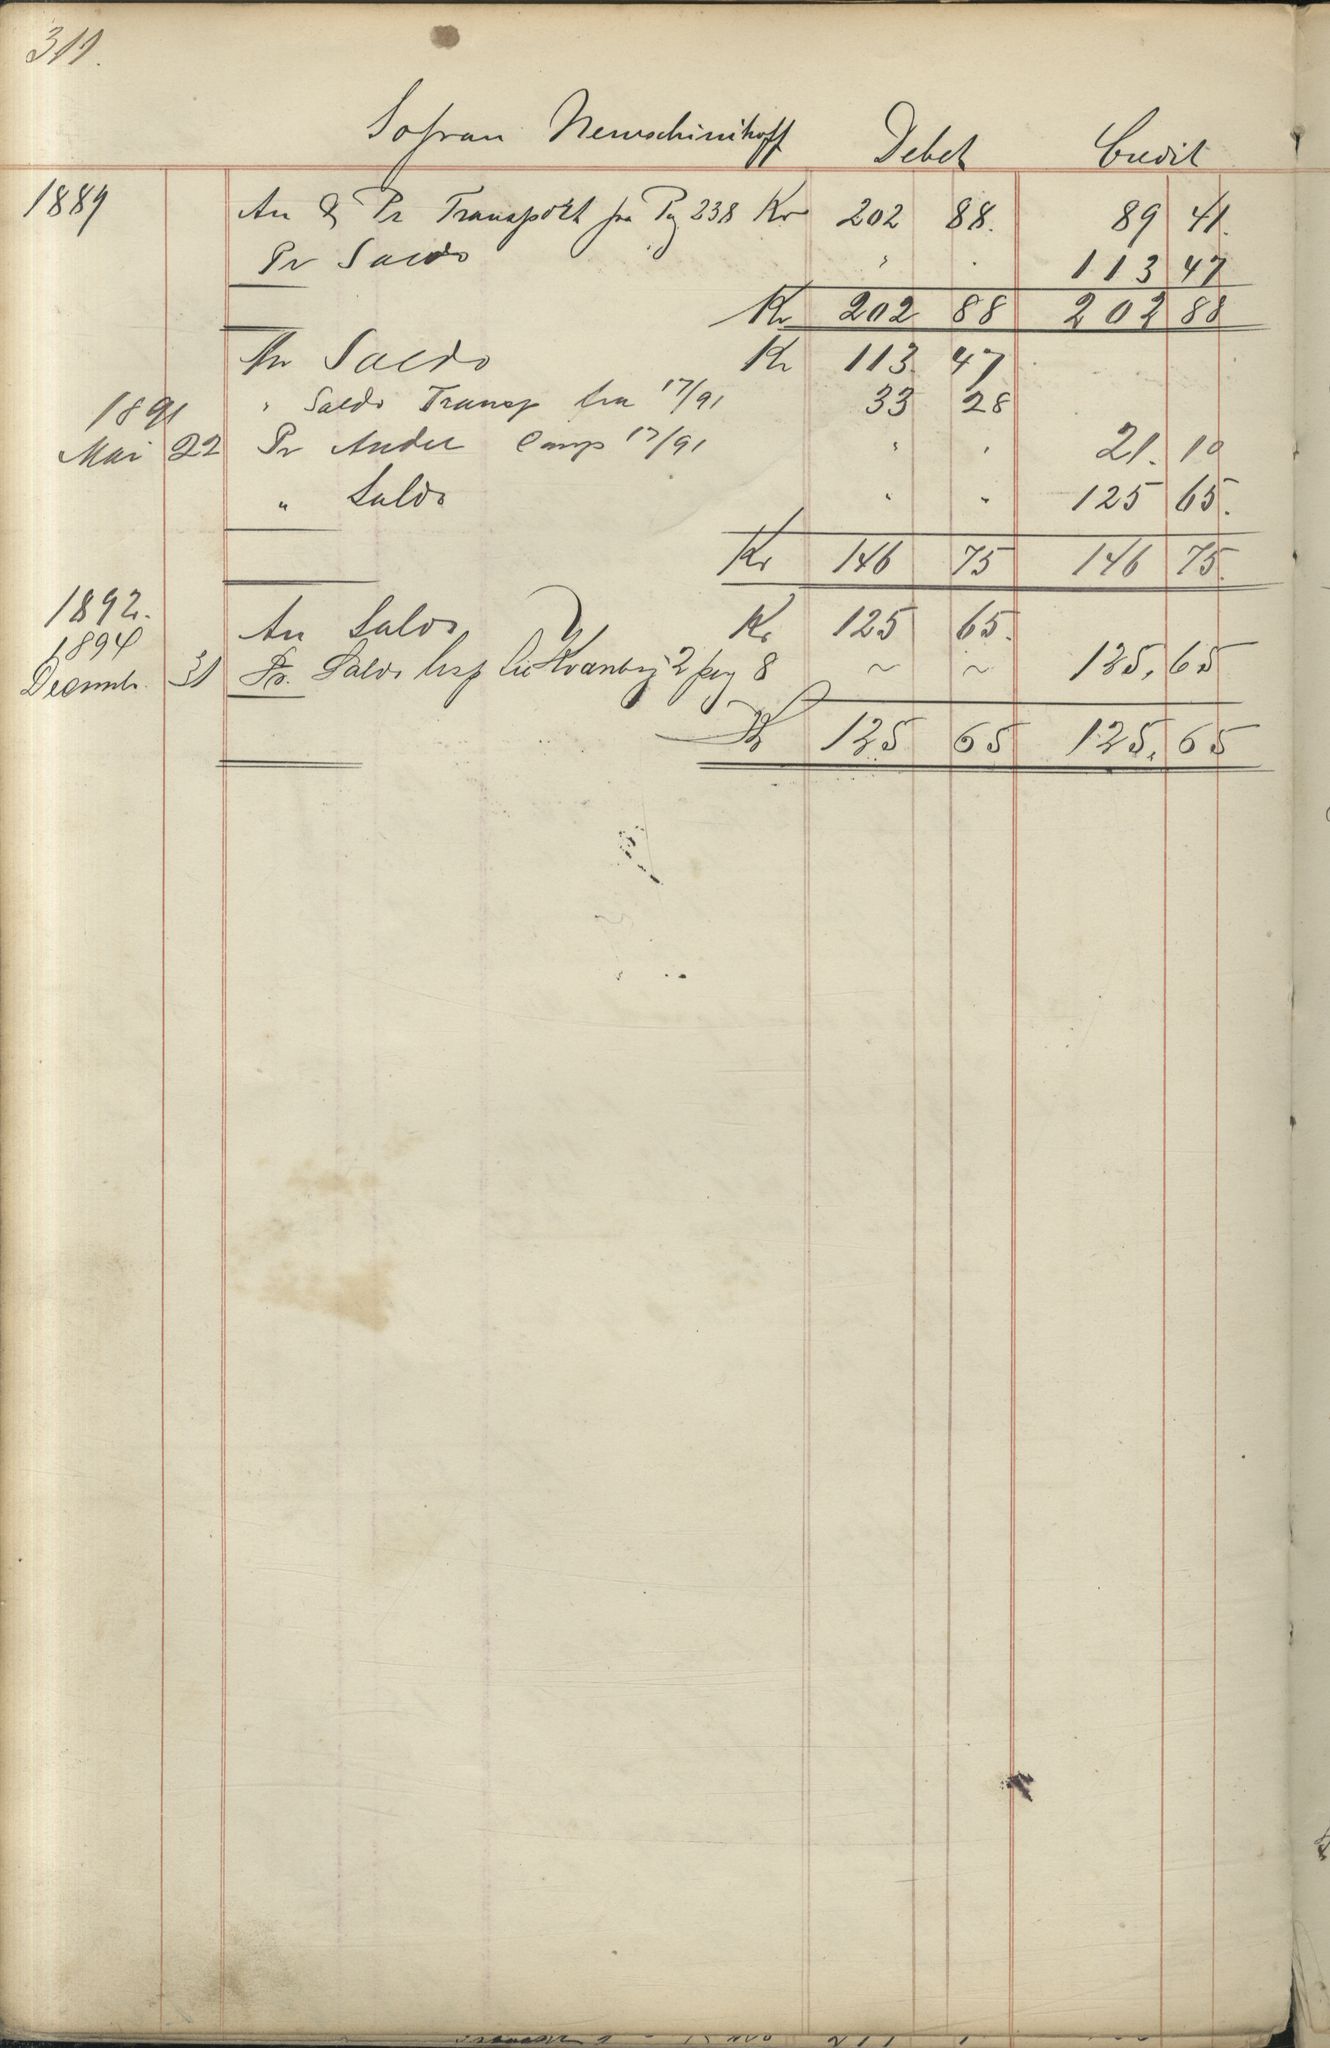 311.
Sofran Newschinihoff Debet Credit
1889 An & Pr Transport fra Pag 238 Kr 202 88. 89 41.
Pr Saldo " . 113 47
Kr 202 88 202 88
An Saldo Kr 113. 47
" Saldo Transp fra 17/91 33 28
1891
Mai 22 Pr Andel Comp 17/91 " " 21. 10
" Saldo " " 125 65.
Kr 146 75 146 75.
1892. An Saldo Kr 125 65.
1894
Decembr. 31 Pr. Saldo til Kvænbog 2 pag 8 ~ ~ 125. 65
Kr 125 65 125. 65